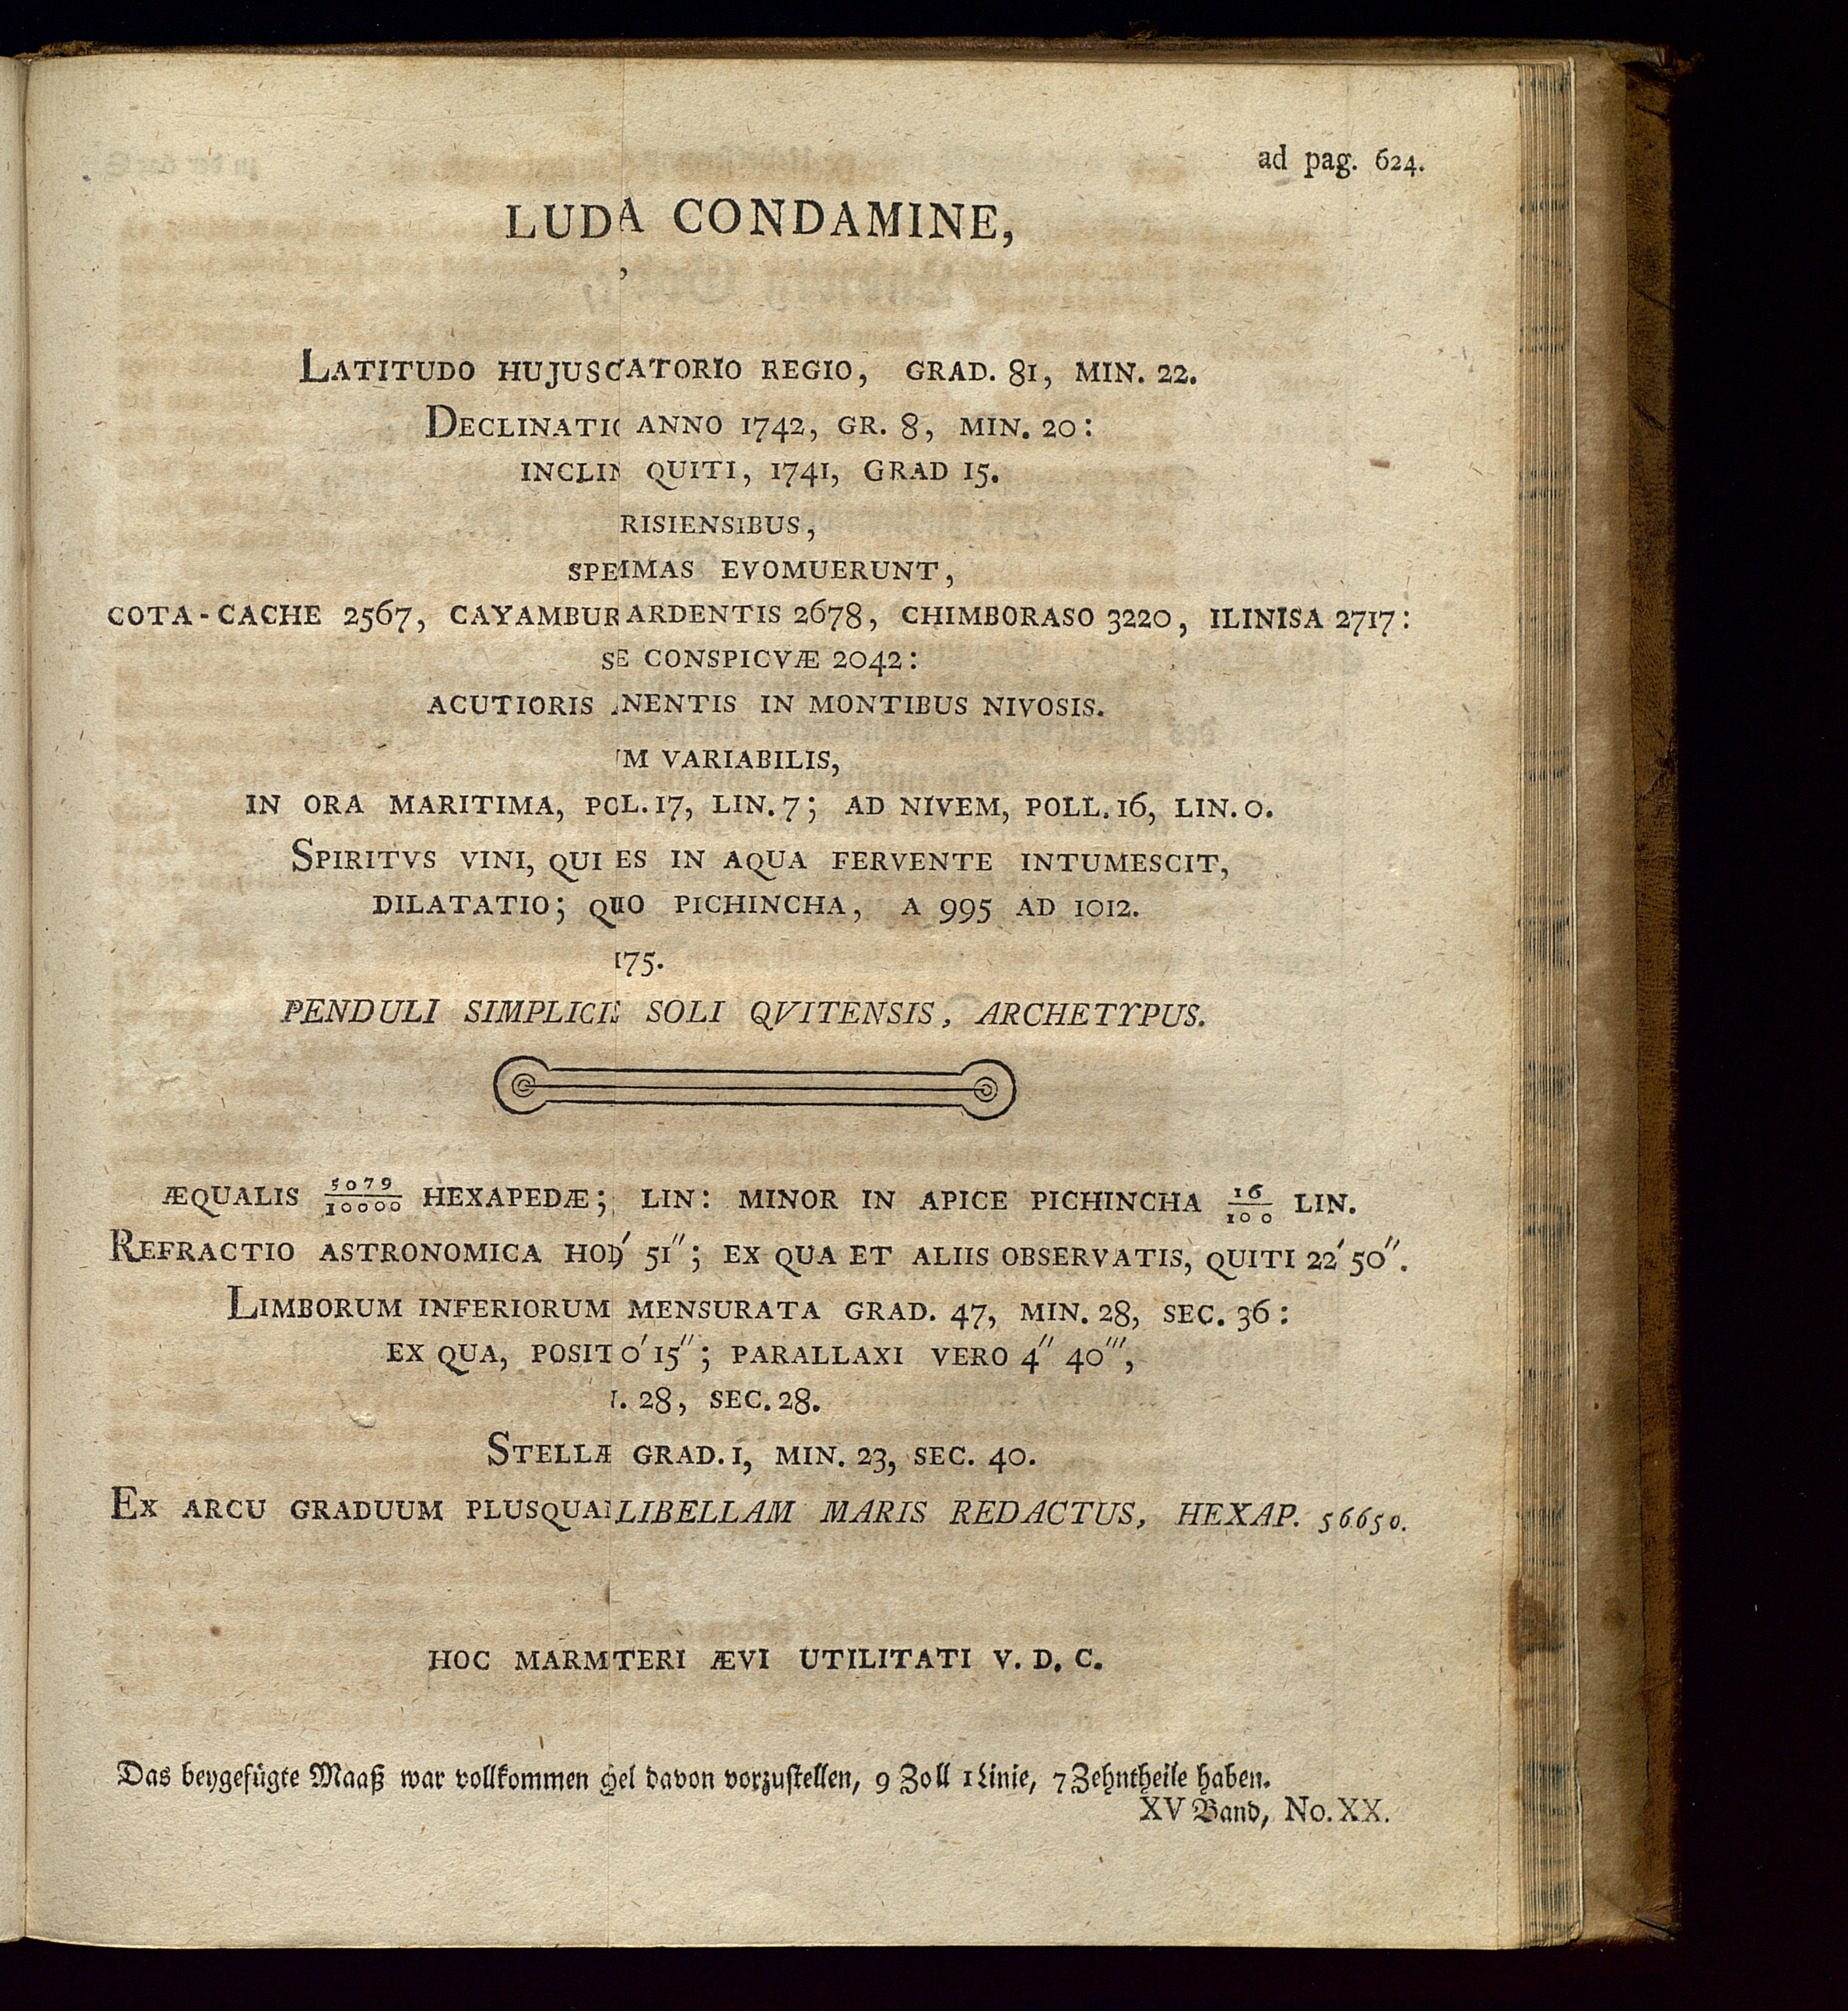 ad pag. 624.
LUDA CONDAMINE,
,
LATITUDO HUJUSCATORIO REGIO, GRAD. 81, MIN. 22.
DECLINATIO ANNO 1742, GR. 8, MIN. 20:
INCLIN QUITI, 1741, GRAD 15.
RISIENSIBUS,
SPEIMAS EVOMUERUNT,
COTA-CACHE 2567, CAYAMBURARDENTIS 2678, CHIMBORASO 3220, ILINISA 2717:
SE CONSPICVÆ 2042:
ACUTIORIS NENTIS IN MONTIBUS NIVOSIS.
M VARIABILIS,
IN ORA MARITIMA, POL. 17, LIN. 7; AD NIVEM, POLL. 16, LIN. 0.
SPIRITVS VINI, QUI ES IN AQUA FERVENTE INTUMESCIT,
DILATATIO; QUO PICHINCHA, A 995 AD 1012.
175.
PENDULI SIMPLICIS SOLI QVITENSIS, ARCHETYPUS.
ÆQUALIS 5079/10000 HEXAPEDÆ; LIN: MINOR IN APICE PICHINCHA 16/100 LIN.
REFRACTIO ASTRONOMICA HOD′ 51″; EX QUA ET ALIIS OBSERVATIS, QUITI 22′ 50″.
LIMBORUM INFERIORUM MENSURATA GRAD. 47, MIN. 28, SEC. 36:
EX QUA, POSITO′ 15″; PARALLAXI VERO 4″ 40‴,
. 28, SEC. 28.
STELLÆ GRAD. 1, MIN. 23, SEC. 40.
EX ARCU GRADUUM PLUSQUAMLIBELLAM MARIS REDACTUS, HEXAP. 56650.
HOC MARMTERI ÆVI UTILITATI V. D. C.
Das beygefügte Maaß war vollkommen gel davon vorzustellen, 9 Zoll 1 Linie, 7 Zehntheile haben.
XV Band, No. XX.